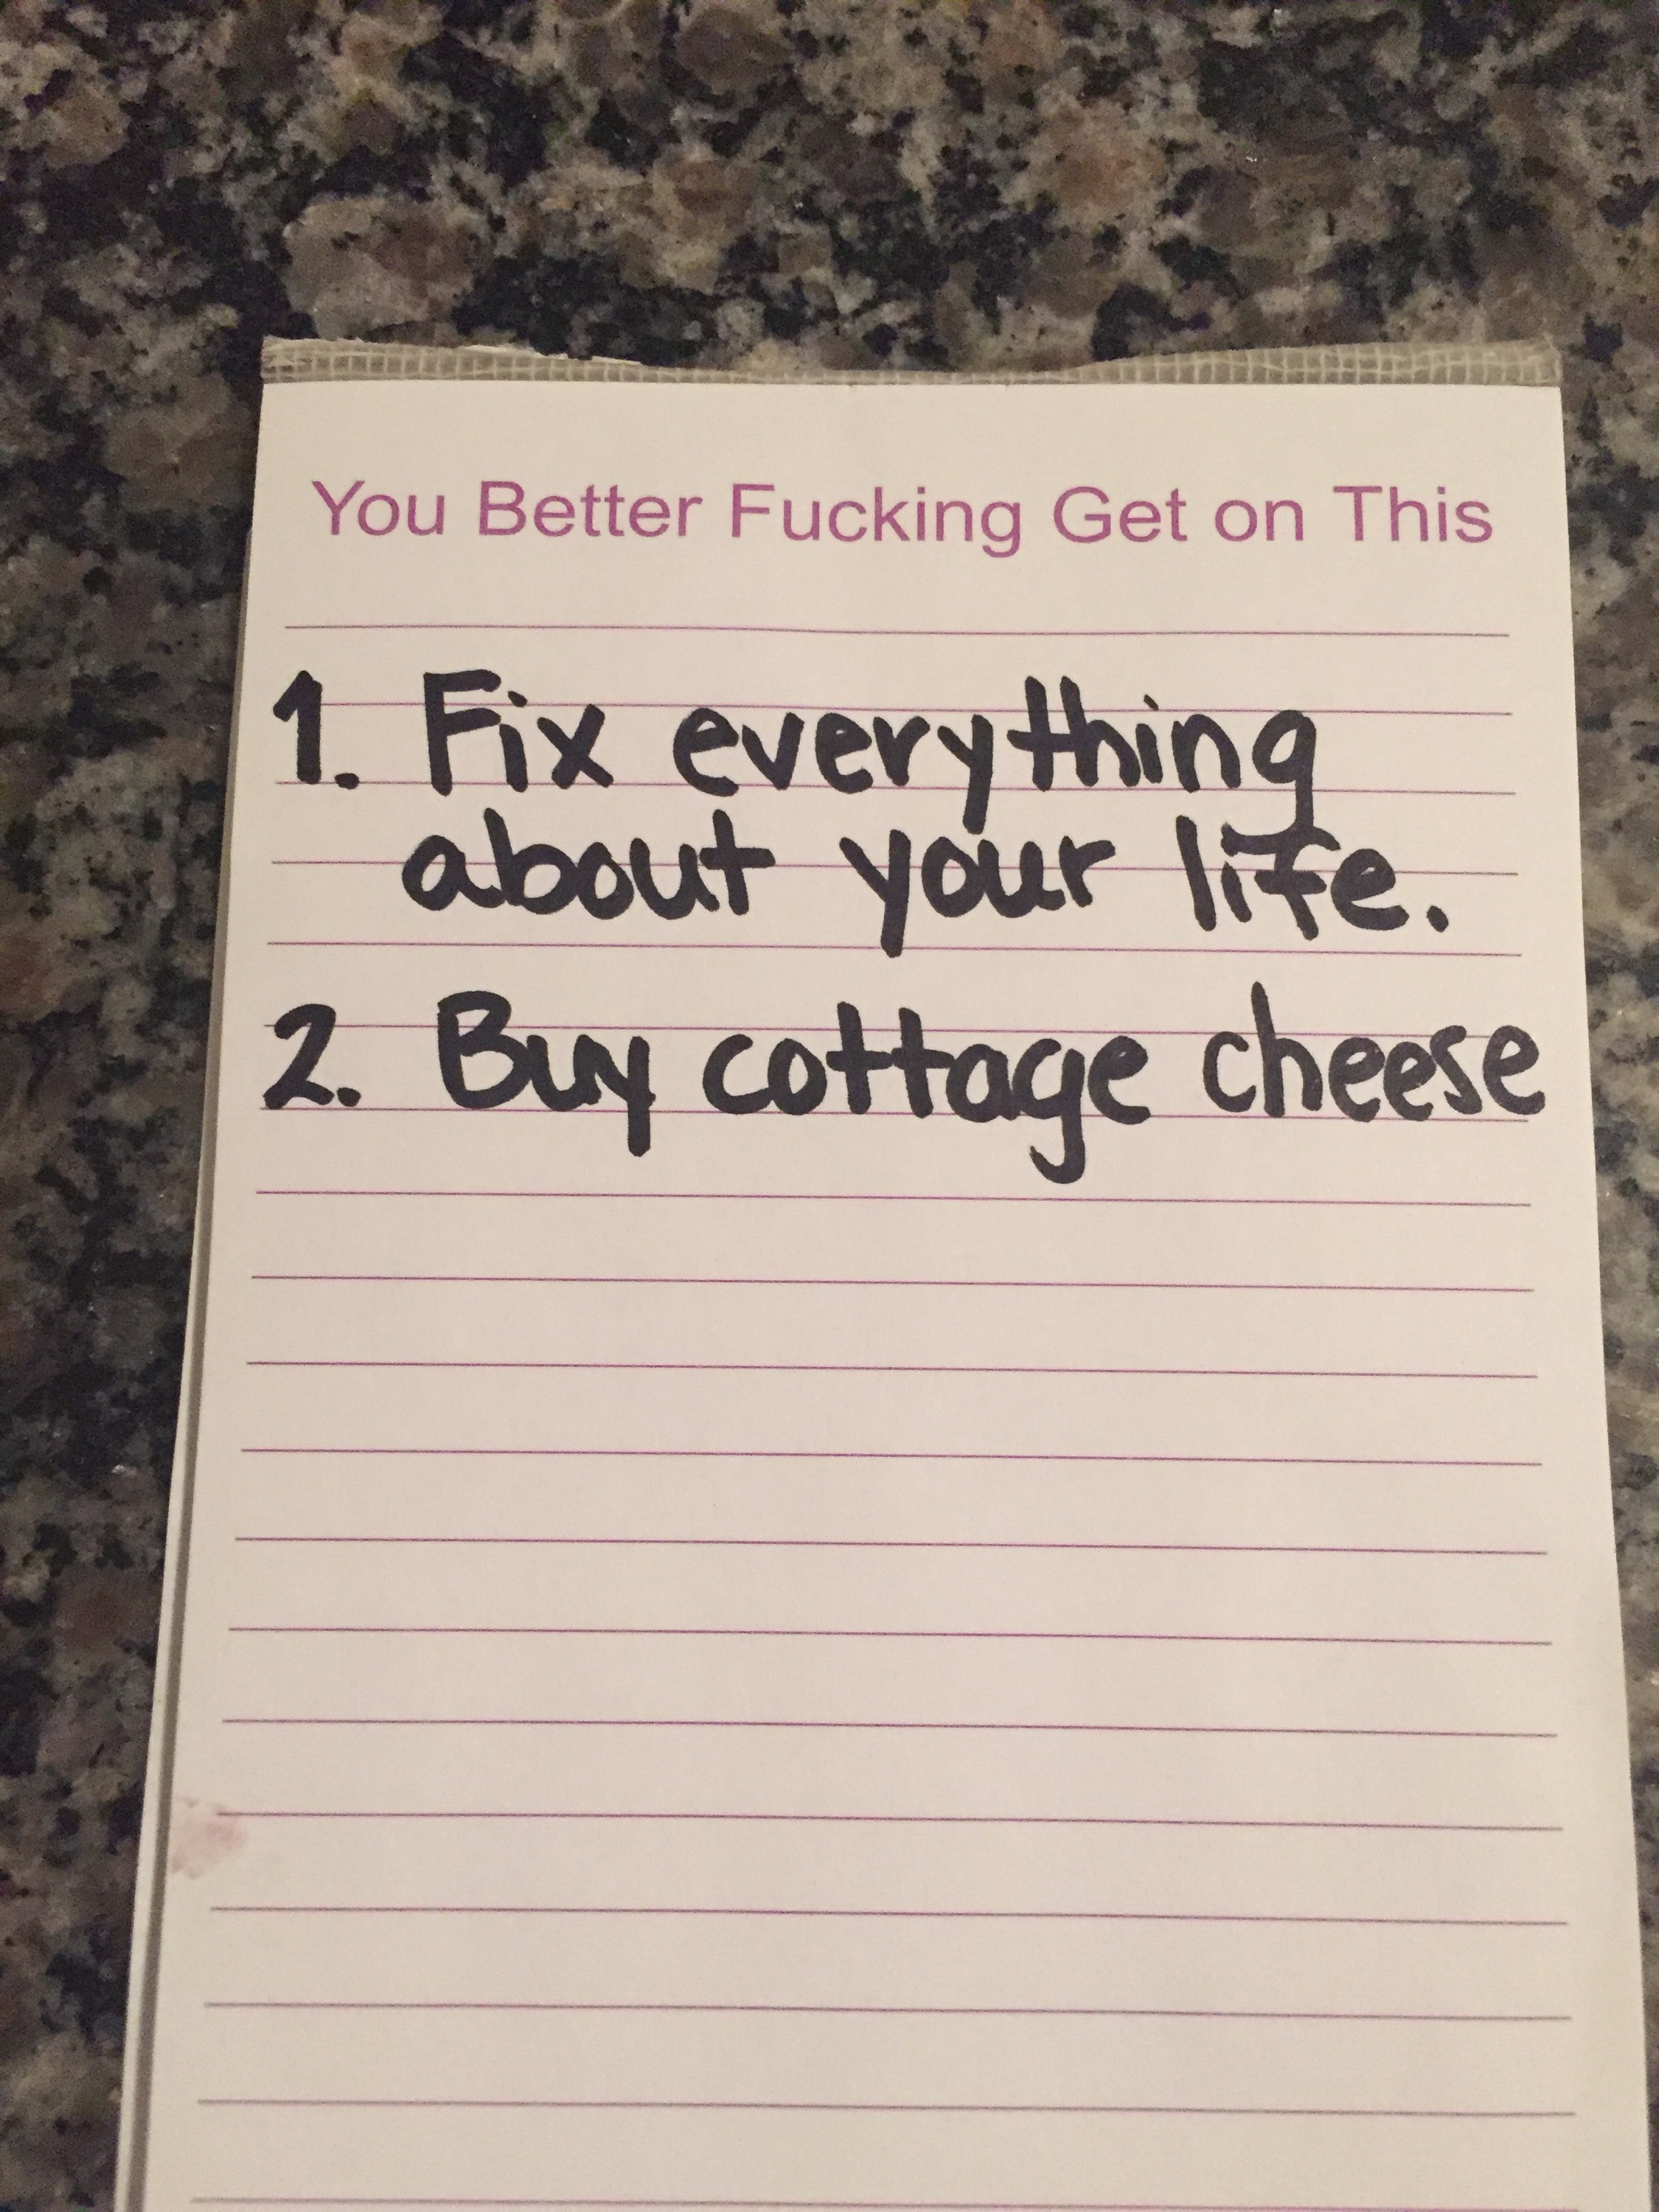 You Better Fucking Get on This
1. Fix everything
about your life.
2. Buy cottage cheese